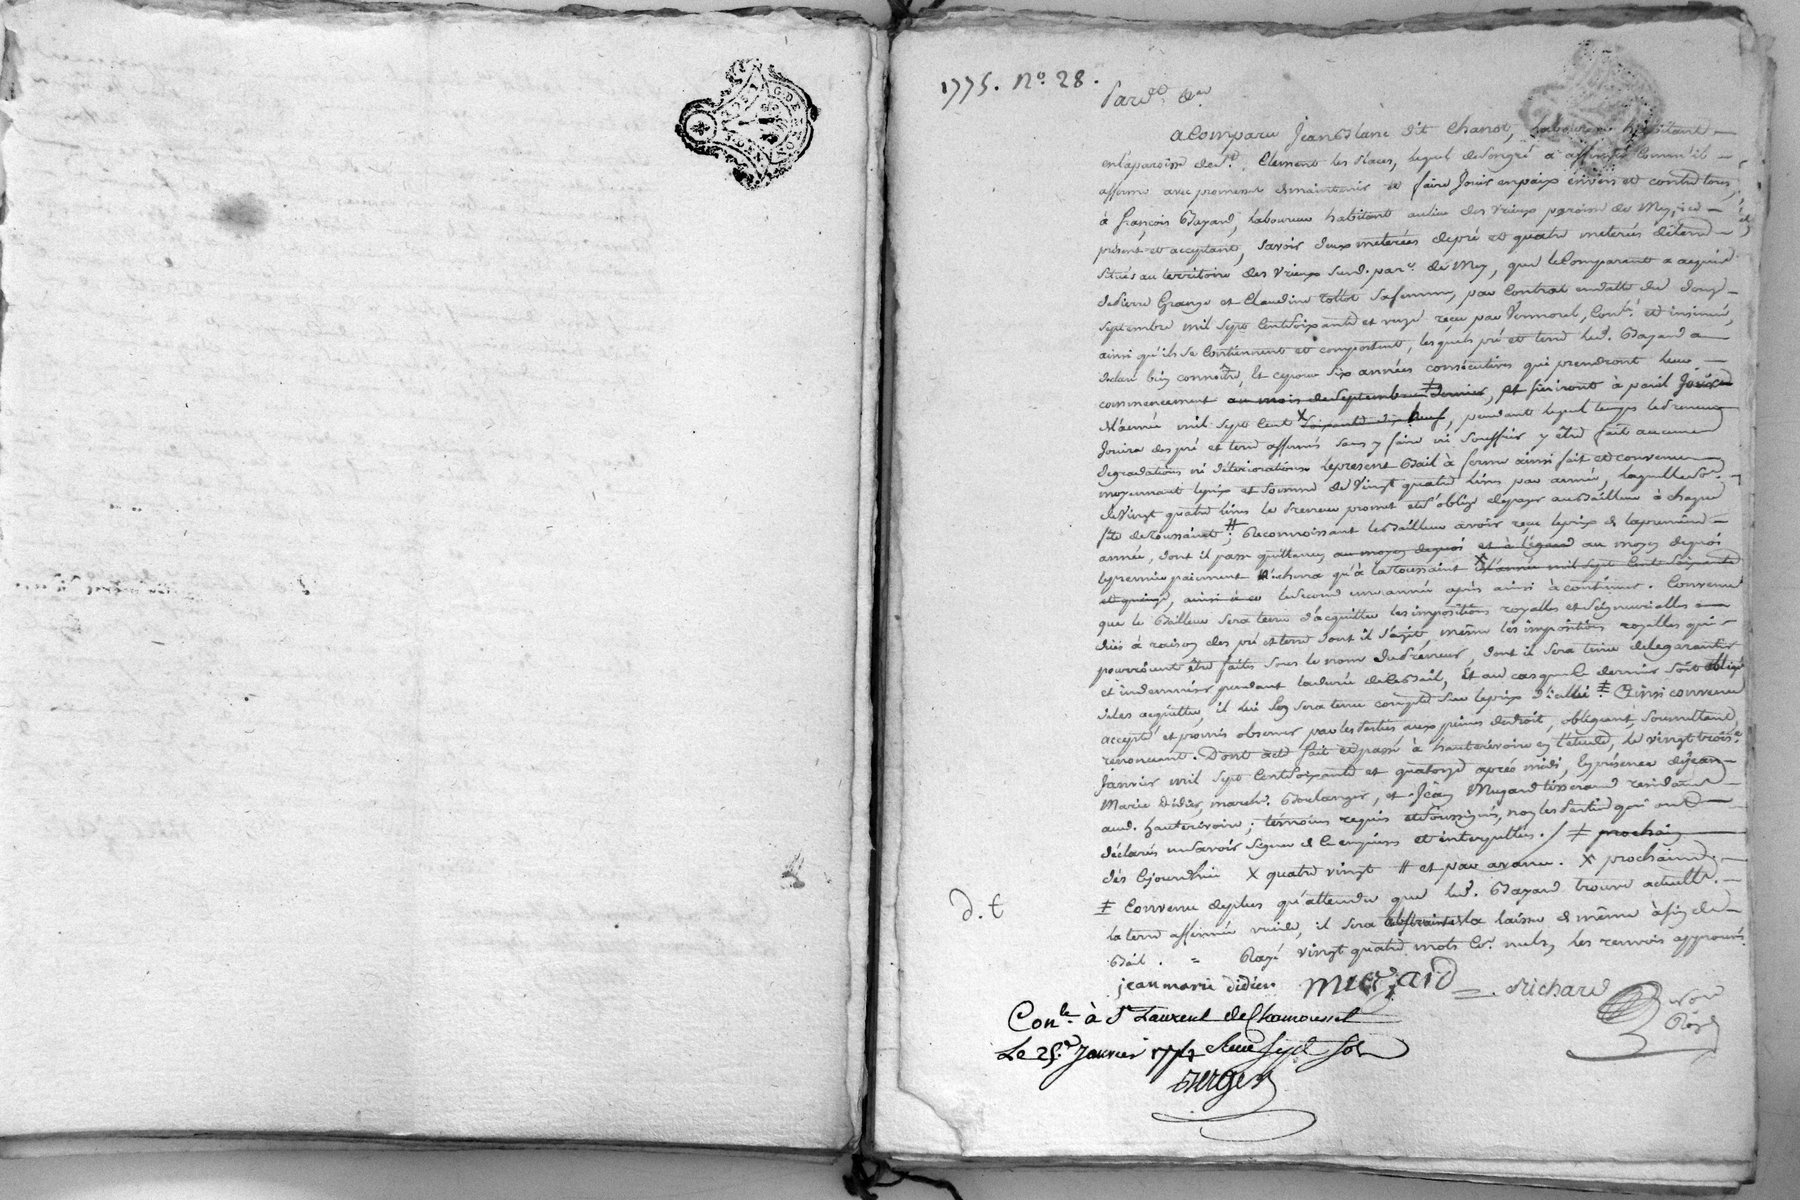 1775. N.º 28.
Pard.t
a Comparu Jean Blanc dit Chanot, laboureur habitant
en la paroisse de S.t Clement les places, lequel de son gré a affermé comm'il
afferme avec promesse de maintenir et faire Jouir en paix envers et contre tous,
à françois Bayard, laboureur habitant au lieu des Vrieux paroisse de Mey, icy
présent et acceptant, savoir deux meterées de pré et quatre meterées de terre
situés au territoire des Vrieux susd. par.e de Mey, que le Comparant a acquis
de pierre Grange et Claudine sa femme, par Contrat en datte du douze
septembre mil sept Cent Soixante et onze reçu par Vermorel, Con.lé et insinué,
ainsi qu'ils se Contiennent et comportent, lesquels pré et terre led. Bayard a
declaré bien connoître, Et ce pour six années consécutives qui prendront leur
commencement au mois de Septembre dernier, et finiront à pareil Jour
de l'année mil sept Cent X soixante dix neuf, pendant lequel temps le preneur
Jouira des pré et terre affermés sans y faire ni souffrir y être fait aucunes
degradations ni détériorations. le present Bail à ferme ainsi fait et convenu
moyennant le prix et somme de Vingt quatre livres par année, laquelle so.e
de Vingt quatre livres le Preneur promet et s'oblige de payer au Bailleur à chaque
fête de Toussaint #; Reconnoissant le Bailleur avoir reçu le prix de la premiere
année, dont il passe quittance, au moyen de quoi et à l'égard au moyen de quoi
le premier paiement n'échera qu'à la Toussaint X de l'année mil sept Cent Soixante
et quinze, ainsi à ce le second une année après ainsi à continuer. Convenu
que le Bailleur sera tenu d'acquitter les impositions royalles et seigneurialles
dües à raison des pré et terre dont il s'agit, même les impositions royalles qui
pourroient être faites sous le nom du Preneur, dont il sera tenu de le garantir
et indemniser pendant la durée de ce Bail, Et au cas que le dernier soit obligé
de les acquitter, il lui en sera tenu compte sur le prix d'icellui ‡ Ainsi convenu
accepté et promis observer par les parties aux peines de droit, obligeant, soumettant,
renonceant. Dont acte fait et passé à hauterivoire en l'etude, le vingt trois.e
Janvier mil sept Cent Soixante et quatorze après midi, En présence de Jean
Marie Didier, march.d Boulanger, et Jean Mugard tisserand residants
aud. hauterivoire, témoins requis et soussignés, non les parties qui ont
déclarés ne savoir signer de ce enquises et interpellées. / ‡ prochain
dès ce jourdhui X quatre vingt # et par avance. X prochaine.
‡ Convenu de plus qu'attendu que led. Bayard trouve actuell.t
la terre affermée vuide, il sera la laisser de même à fin de
Bail. = Rayé vingt quatre mots Co.e nuls, les renvois approuvés.
d. t
jean marie didier mugard Richard
Con.lé à S.t Laurent de Chamousset
Le 25.e Janvier 1774 Reçu sept sols
Berger